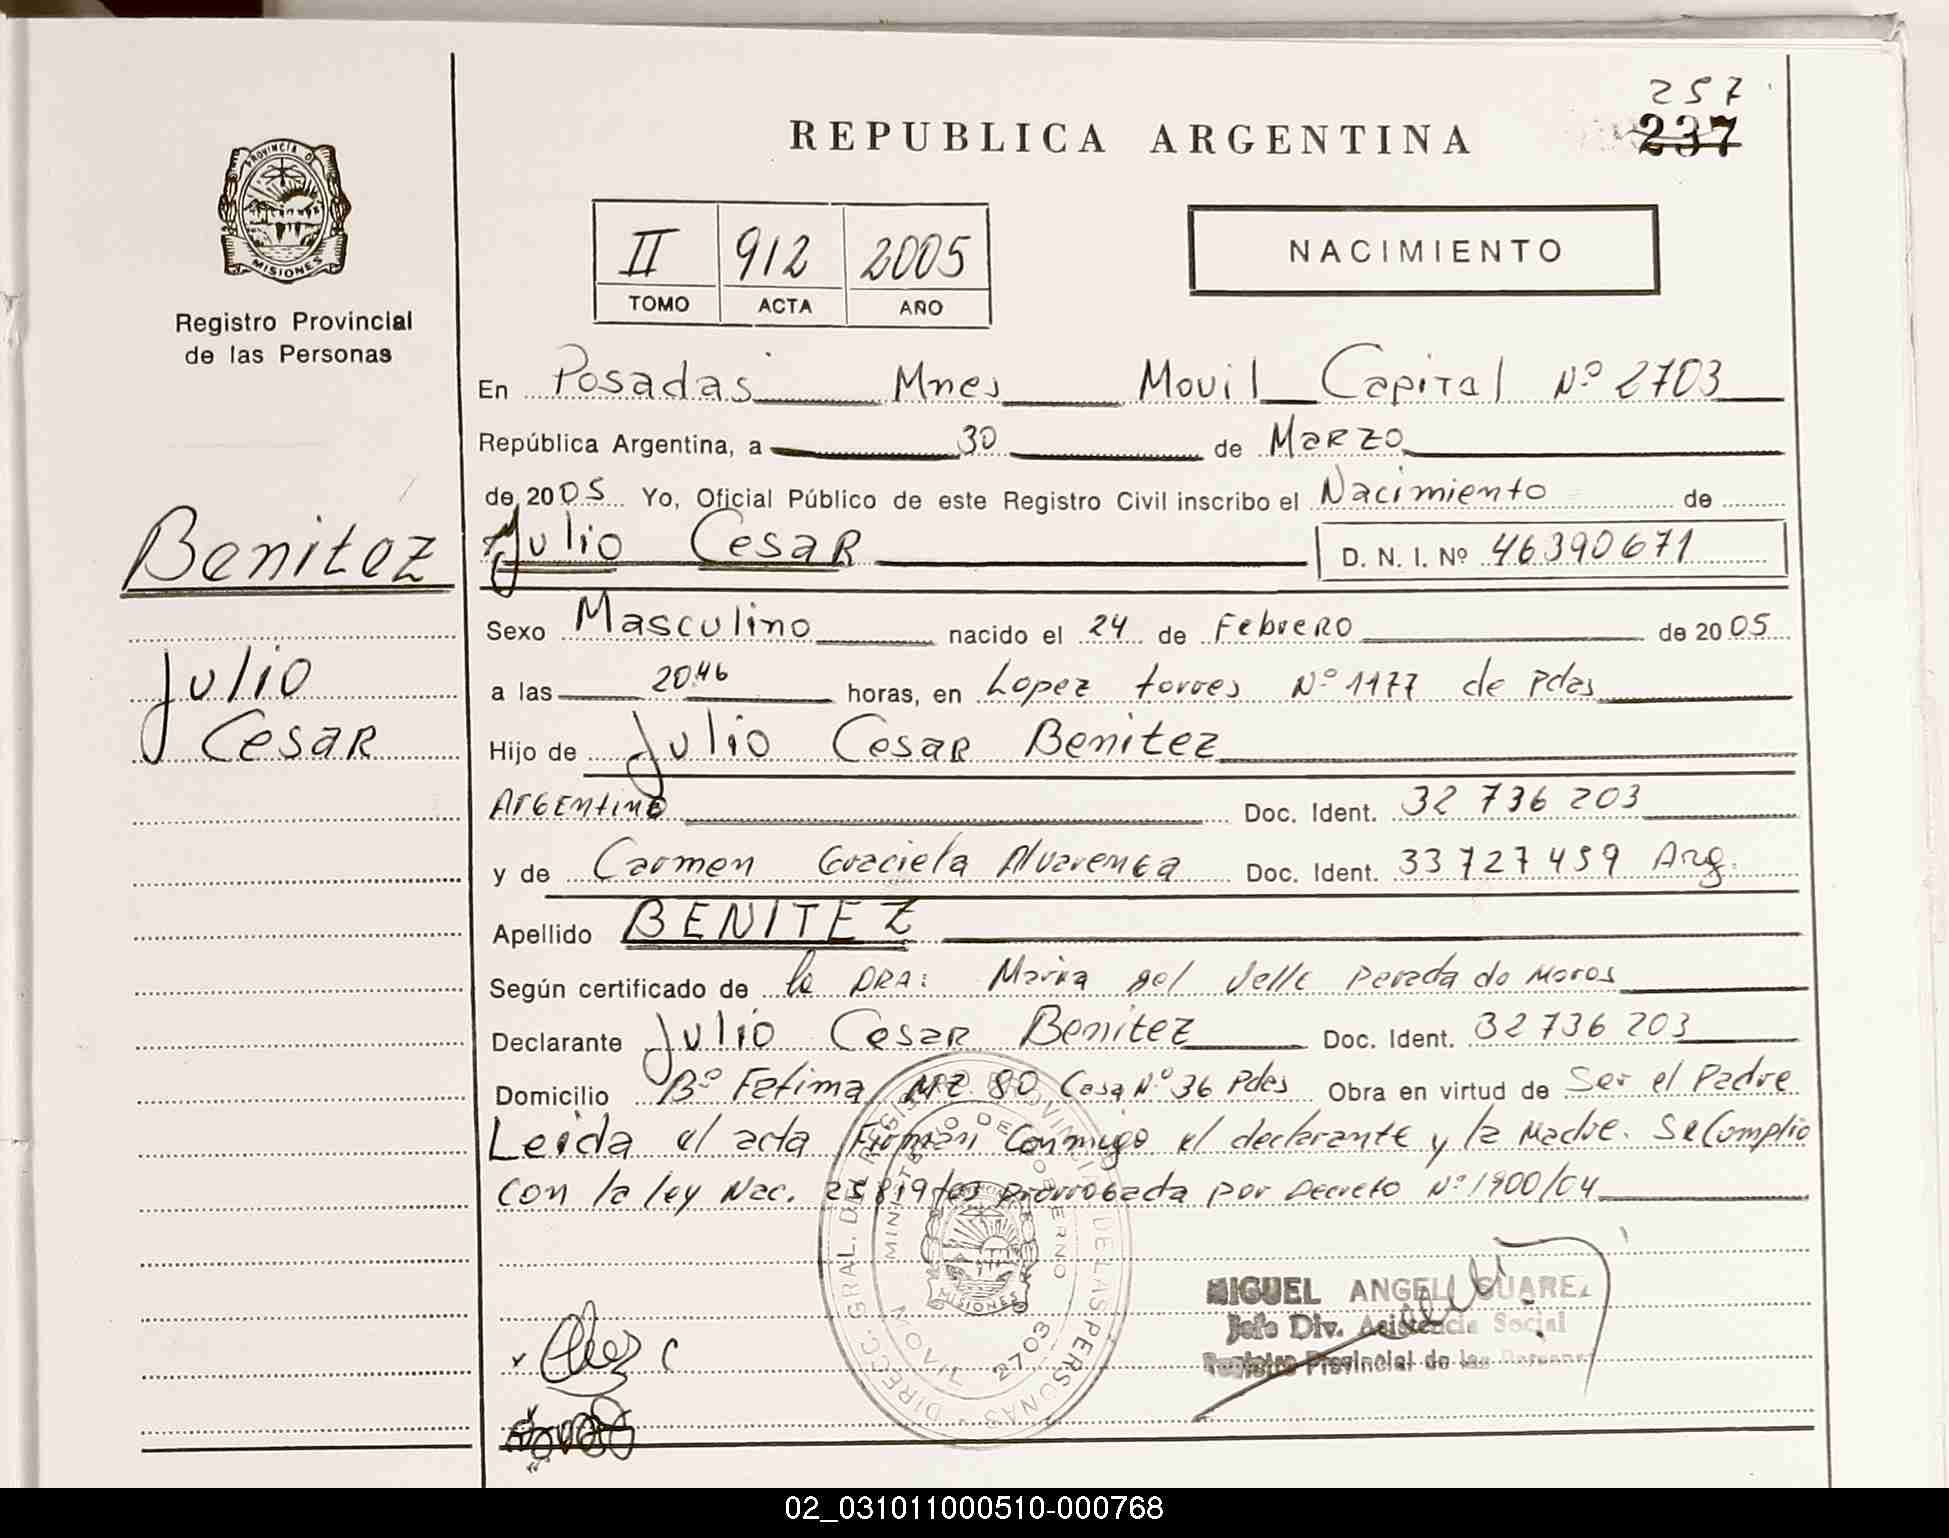 257
237
REPUBLICA ARGENTINA
PROVINCIA DE
MISIONES
Registro Provincial
de las Personas
II 912 2005
TOMO ACTA AÑO
NACIMIENTO
En Posadas Mnes Movil Capital Nº 2703
República Argentina, a 30 de Marzo
de 2005 Yo, Oficial Público de este Registro Civil inscribo el Nacimiento de
Benitez
Julio Cesar D. N. I. Nº 46390671
Sexo Masculino nacido el 24 de Febrero de 2005
Julio
a las 20:46 horas, en Lopez torres Nº 1177 de Pdas
Cesar
Hijo de Julio Cesar Benitez
Argentino Doc. Ident. 32 736 203
y de Carmen Graciela Alvarenga Doc. Ident. 33 727 459 Arg.
Apellido BENITEZ
Según certificado de la DRA: Maria del Valle de Moros
Declarante Julio Cesar Benitez Doc. Ident. 32 736 203
Domicilio Bº Fatima MZ 80 Casa Nº 36 Pdas Obra en virtud de Ser el Padre
Leida el acta Firman Conmigo el declarante y la Madre. Se Cumplio
con la ley Nac. por Decreto Nº 1900/04
DIRECC. GRAL. DEL REGISTRO PROVINCIAL DE LAS PERSONAS
MINISTERIO DE GOBIERNO
MISIONES
MOVIL 2703
MIGUEL ANGEL SUAREZ
Jefe Div. Asistencia Social
Registro Provincial de las Personas
02_031011000510-000768